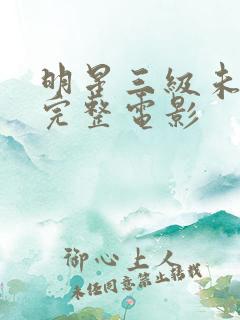 明星三級未
完整電影
御心上人
未经同意禁止转载